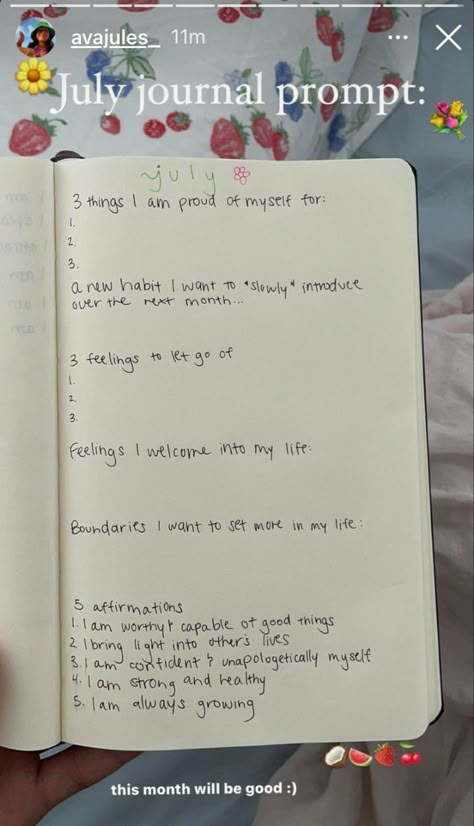 avajules_ 11m
July journal prompt:
july
3 things I am proud of myself for:
1.
2.
3.
a new habit I want to *slowly* introduce
over the next month...
3 feelings to let go of
1.
2.
3.
Feelings I welcome into my life:
Boundaries I want to set more in my life:
5 affirmations
1. I am worthy & capable of good things
2 I bring light into other's lives
3. I am confident & unapologetically myself
4. I am strong and healthy
5. I am always growing
this month will be good :)